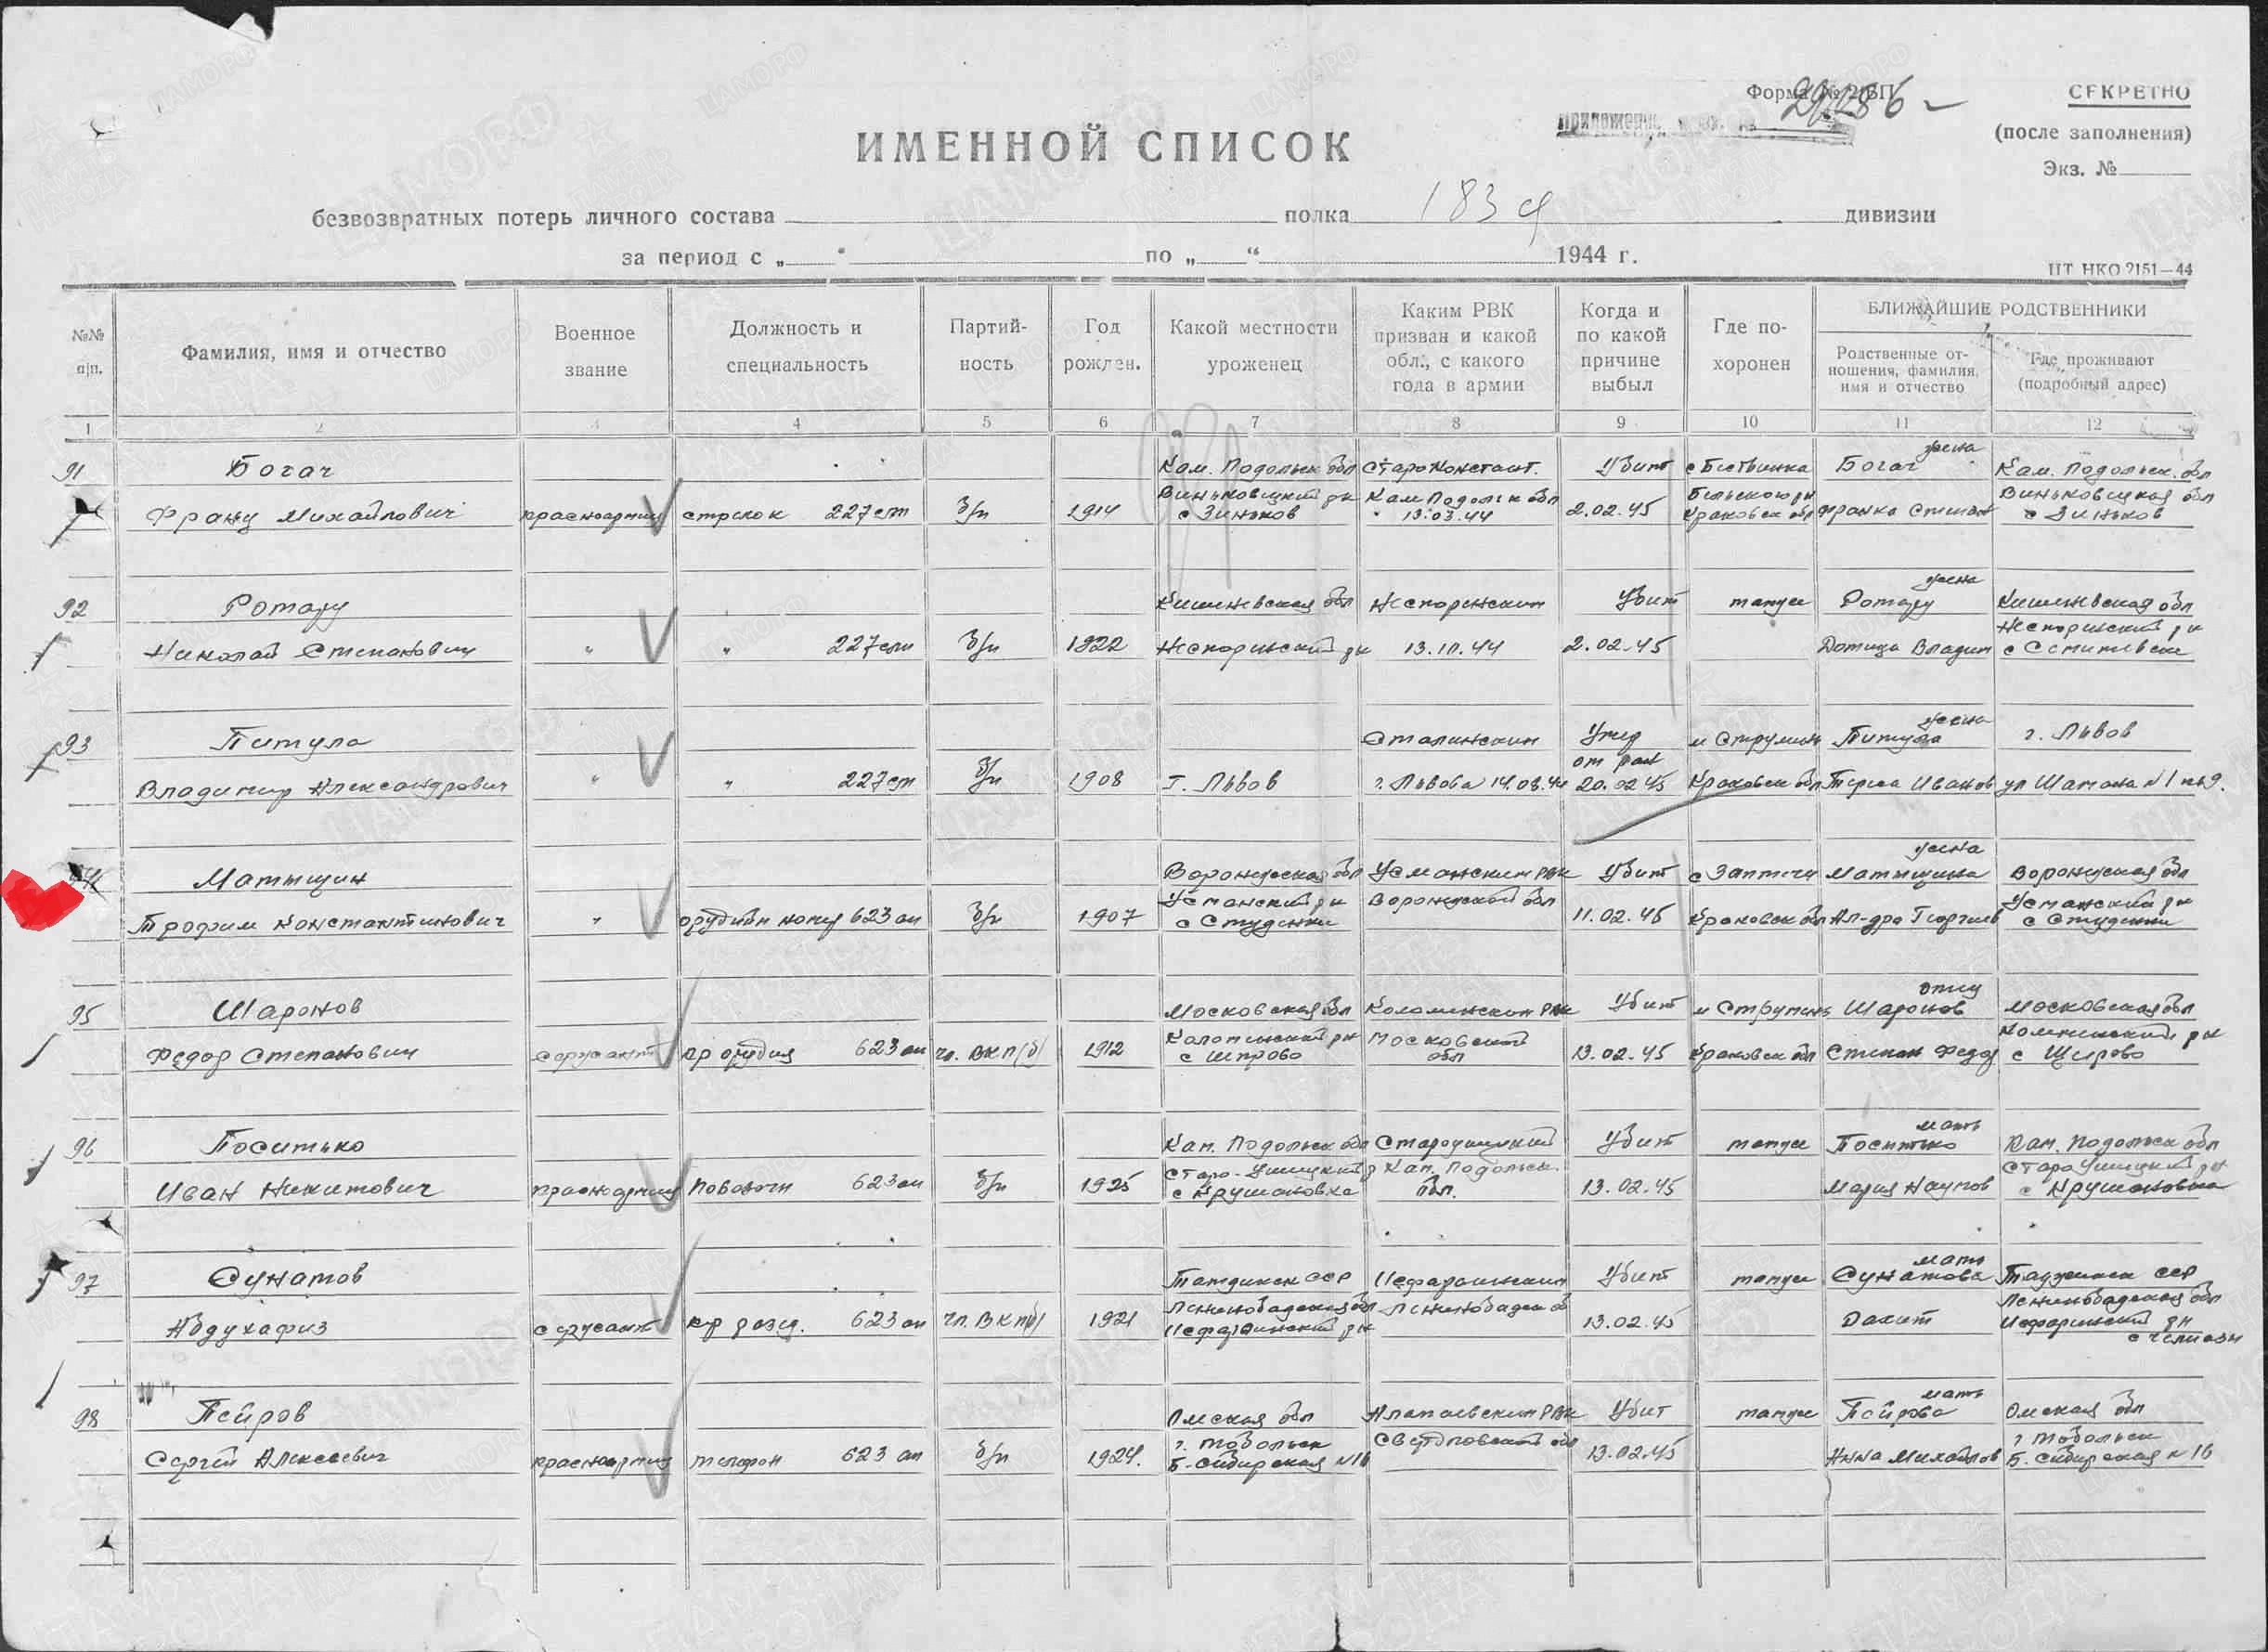 Форма № 2/БП
СЕКРЕТНО
(после заполнения)
Экз. №
ИМЕННОЙ СПИСОК
безвозвратных потерь личного состава полка 183 сд дивизии
за период с „ “ по „ “ 1944 г.
ЦТ НКО 2151—44
№№ п/п.
Фамилия, имя и отчество
Военное звание
Должность и специальность
Партийность
Год рожден.
Какой местности уроженец
Каким РВК призван и какой обл., с какого года в армии
Когда и по какой причине выбыл
Где похоронен
БЛИЖАЙШИЕ РОДСТВЕННИКИ
Родственные отношения, фамилия, имя и отчество
Где проживают (подробный адрес)
1 2 3 4 5 6 7 8 9 10 11 12
жена
91 Богач Кам. Подольск обл Староконстант. Убит Богач Кам. Подольск. обл
Виньковецкий рн Кам Подольск обл
Франц Михайлович красноармеец стрелок 227 сп б/п 1914 с Зиньков 13.03.44 2.02.45 Краковск обл с Зиньков
жена
92 Ротару Кишиневская обл Убит тамже Ротару Кишиневская обл
Николай Степанович " " 227 сп б/п 1922 2.02.45
жена
93 Питула Сталинским Умер Питула г. Львов
от ран
Владимир Александрович " " 227 сп б/п 1908 г. Львов г. Львова 14.08.44 20.02.45 Краковск обл
жена
94 Матыцин Воронежская обл Усманским РВК Убит Матыцина Воронежская обл
Усманский рн Воронежской обл Усманский рн
Трофим Константинович " орудийн номер 623 ап б/п 1907 с Студенки 11.02.45 Краковск обл с Студенки
отец
95 Шаронов Московская обл Коломенским РВК Убит Шаронов Московская обл
Московской
Федор Степанович сержант к-р орудия 623 ап чл. ВКП(б) 1912 обл 13.02.45 Краковск обл Степан Федор
мать
96 Поситько Кам. Подольск обл Староушицкий Убит тамже Поситько Кам. Подольск обл
Старо-Ушицкий р Кам. Подольск. Старо Ушицкий рн
Иван Никитович красноармеец повозочн 623 ап б/п 1925 с Крушановка обл. 13.02.45 Мария Наумов с Крушановка
мать
97 Сунатов Таджикск ССР Убит тамже Сунатова Таджикск ССР
Ленинабадская обл Ленинабадск об Ленинабадская обл
Абдухафиз сержант к-р развед. 623 ап чл. ВКП(б) 1921 13.02.45
мать
98 Пейров Омская обл Алапаевским РВК Убит тамже Пейрова Омская обл
г. Тобольск Свердловской обл г Тобольск
Сергей Алексеевич красноармеец телефон 623 ап б/п 1924. Б. Сибирская №16 13.02.45 Анна Михайлов Б. Сибирская №16